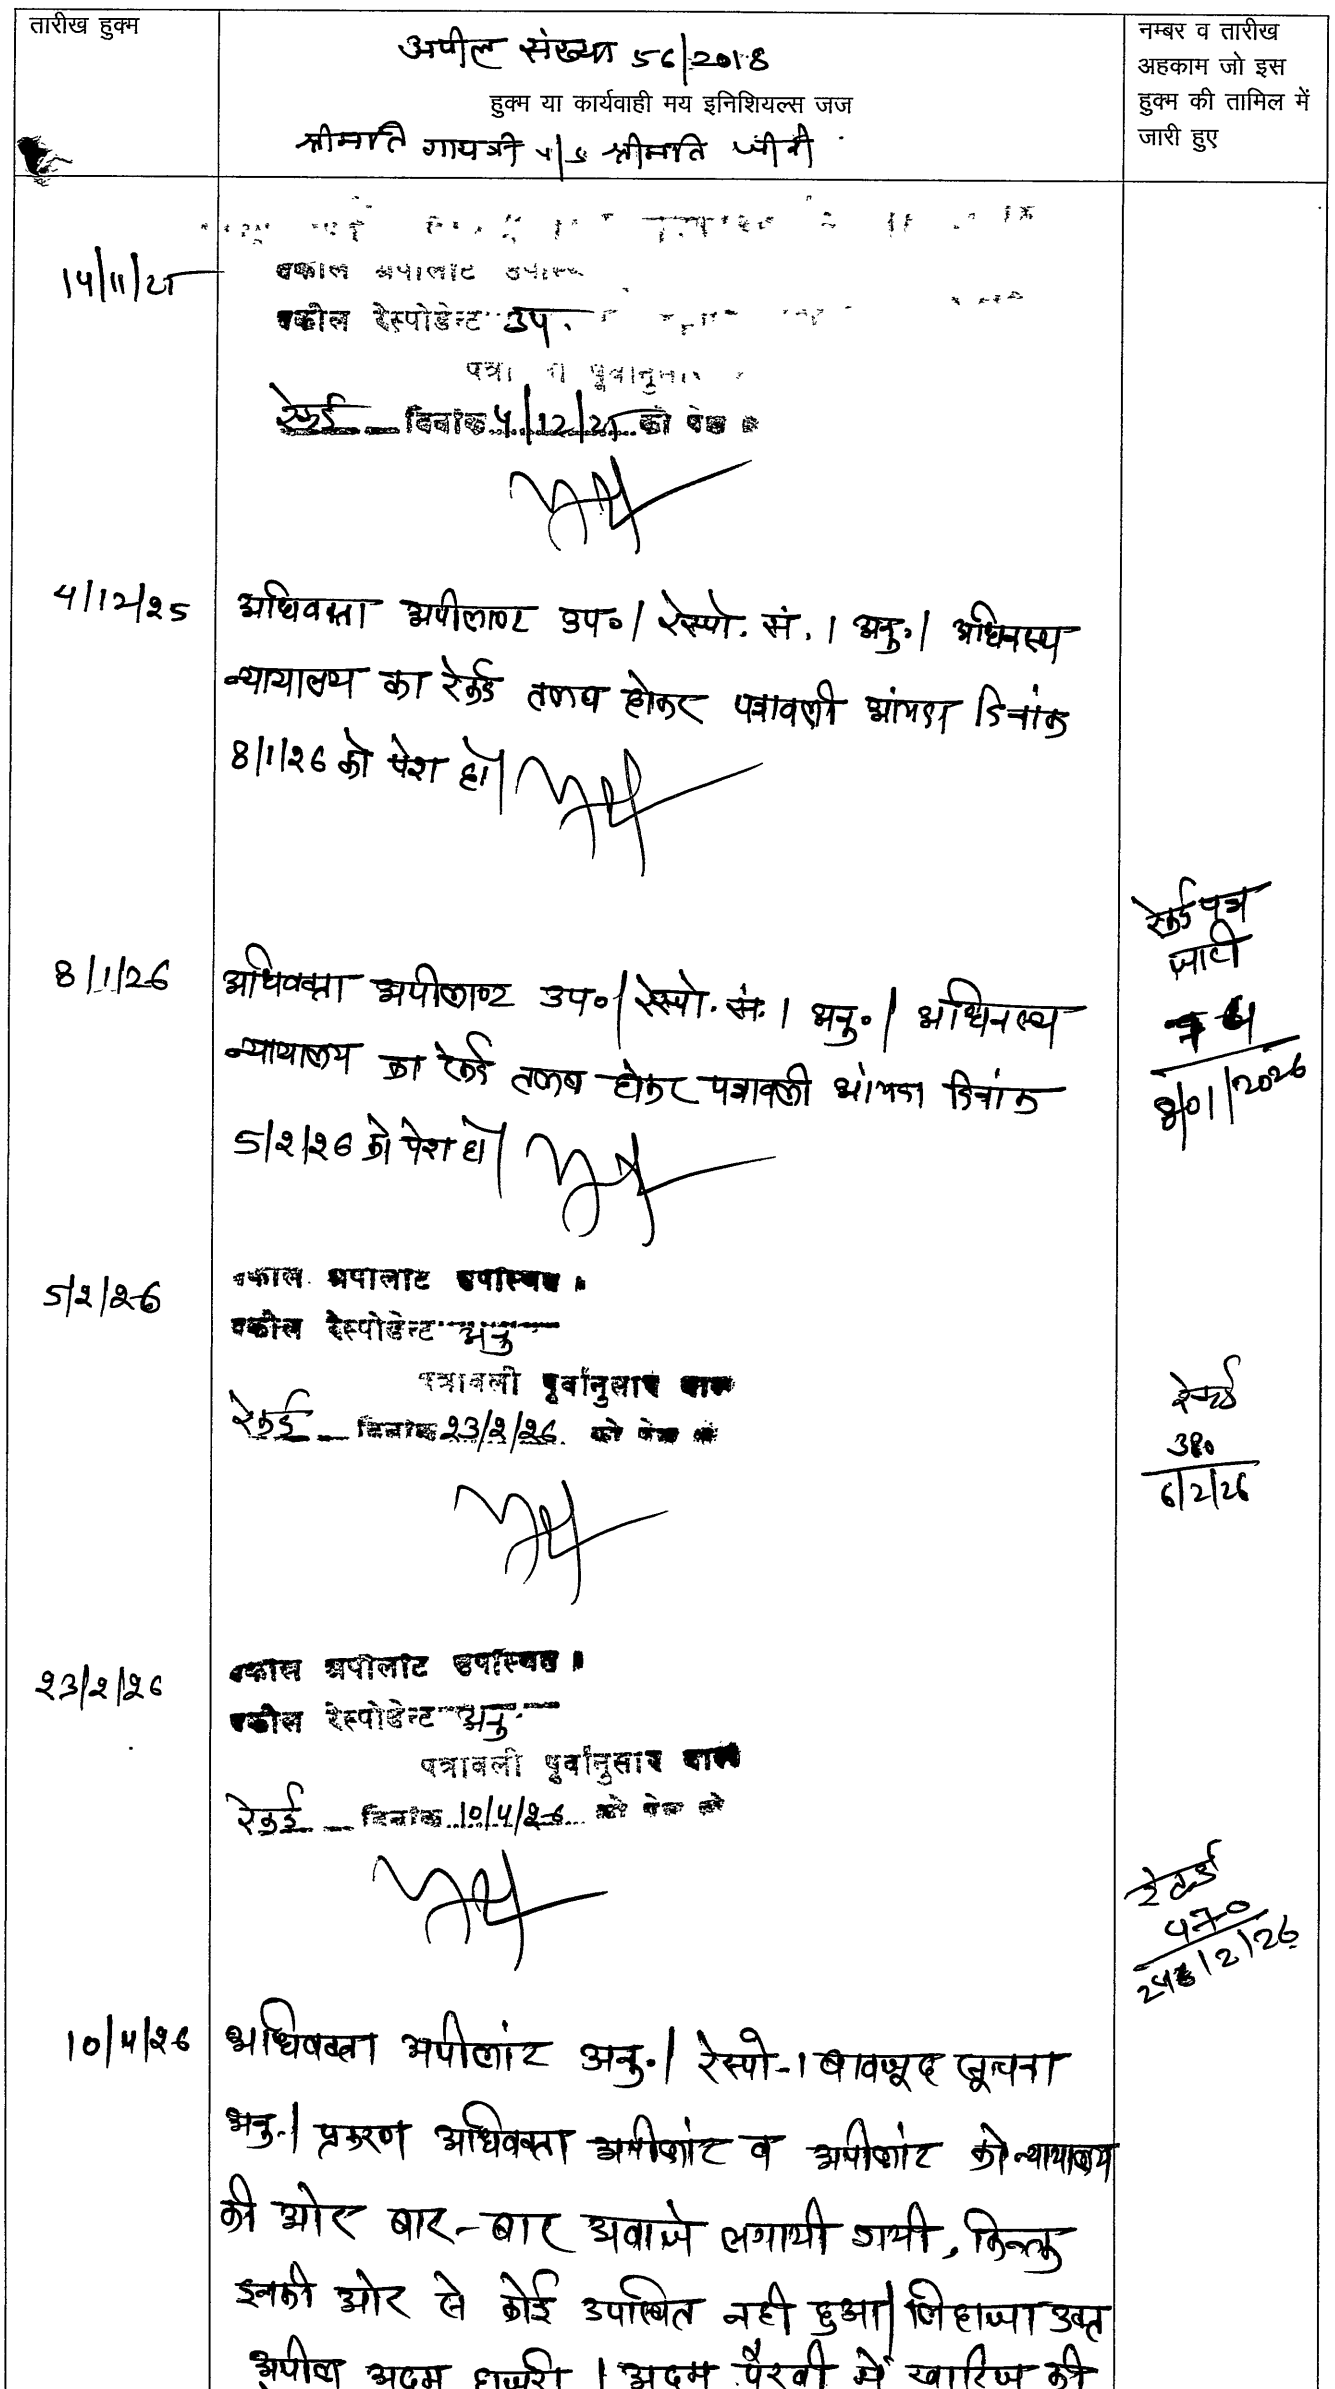 तारीख हुक्म
अपील संख्या 56/2018
हुक्म या कार्यवाही मय इनिशियल्स जज
श्रीमति गायत्री v/s श्रीमति
नम्बर व तारीख
अहकाम जो इस
हुक्म की तामिल में
जारी हुए
14/11/25
वकील अपीलांट
वकील रेस्पोडेन्ट उप.
रेकर्ड दिनांक 4/12/25 को पेश
4/12/25
अधिवक्ता अपीलाण्ट उप०। रेस्पो. सं. 1 अनु०। अधिनस्थ
न्यायालय का रेकर्ड तलब होकर पत्रावली आंयन्दा दिनांक
8/1/26 को पेश हो।
रेकर्ड पत्र
जारी
8/01/2026
8/1/26
अधिवक्ता अपीलाण्ट उप०। रेस्पो. सं. 1 अनु०। अधिनस्थ
न्यायालय का रेकर्ड तलब होकर पत्रावली आंयन्दा दिनांक
5/2/26 को पेश हो।
5/2/26
वकील अपीलांट उपस्थित।
वकील रेस्पोडेन्ट अनु
पत्रावली पूर्वानुसार वास्ते
रेकर्ड दिनांक 23/2/26 को पेश हो
रेकर्ड
380
6/2/26
23/2/26
वकील अपीलांट उपस्थित।
वकील रेस्पोडेन्ट अनु.
पत्रावली पूर्वानुसार वास्ते
रेकर्ड दिनांक 10/4/26 को पेश हो
रेकर्ड
470
/2/26
10/4/26
अधिवक्ता अपीलांट अनु.। रेस्पो-1 बावजूद सूचना
अनु.। प्रकरण अधिवक्ता अपीलांट व अपीलांट को न्यायालय
की ओर बार-बार अवाजे लगायी गयी, किन्तु
इनकी ओर से कोई उपस्थित नही हुआ। लिहाजा उक्त
अपील अदम हाजरी । अदम पैरवी में खारिज की